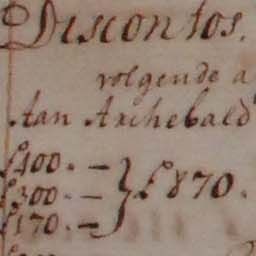 Descontos.
volgende a
Aan Archebald
£400. —
£300. — } £870.
£170. —